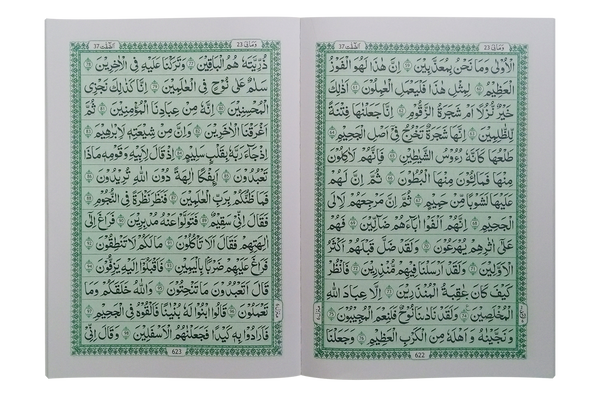 وَمَالِیَ 23
الصّٰٓفّٰت 37
الْاُوْلٰى وَمَا نَحْنُ بِمُعَذَّبِيْنَ ۝ اِنَّ هٰذَا لَهُوَ الْفَوْزُ
الْعَظِيْمُ ۝ لِمِثْلِ هٰذَا فَلْيَعْمَلِ الْعٰمِلُوْنَ ۝ اَذٰلِكَ
خَيْرٌ نُّزُلًا اَمْ شَجَرَةُ الزَّقُّوْمِ ۝ اِنَّا جَعَلْنٰهَا فِتْنَةً
لِّلظّٰلِمِيْنَ ۝ اِنَّهَا شَجَرَةٌ تَخْرُجُ فِيْٓ اَصْلِ الْجَحِيْمِ ۝
طَلْعُهَا كَاَنَّهٗ رُءُوْسُ الشَّيٰطِيْنِ ۝ فَاِنَّهُمْ لَاٰكِلُوْنَ
مِنْهَا فَمَالِـُٔوْنَ مِنْهَا الْبُطُوْنَ ۝ ثُمَّ اِنَّ لَهُمْ
عَلَيْهَا لَشَوْبًا مِّنْ حَمِيْمٍ ۝ ثُمَّ اِنَّ مَرْجِعَهُمْ لَا۟اِلَى
الْجَحِيْمِ ۝ اِنَّهُمْ اَلْفَوْا اٰبَآءَهُمْ ضَآلِّيْنَ ۝ فَهُمْ
عَلٰٓى اٰثٰرِهِمْ يُهْرَعُوْنَ ۝ وَلَقَدْ ضَلَّ قَبْلَهُمْ اَكْثَرُ
الْاَوَّلِيْنَ ۝ وَلَقَدْ اَرْسَلْنَا فِيْهِمْ مُّنْذِرِيْنَ ۝ فَانْظُرْ
كَيْفَ كَانَ عَاقِبَةُ الْمُنْذَرِيْنَ ۝ اِلَّا عِبَادَ اللّٰهِ
الْمُخْلَصِيْنَ ۝ وَلَقَدْ نَادٰىنَا نُوْحٌ فَلَنِعْمَ الْمُجِيْبُوْنَ ۝
وَنَجَّيْنٰهُ وَاَهْلَهٗ مِنَ الْكَرْبِ الْعَظِيْمِ ۝ وَجَعَلْنَا
622
وَمَالِیَ 23
الصّٰٓفّٰت 37
ذُرِّيَّتَهٗ هُمُ الْبٰقِيْنَ ۝ وَتَرَكْنَا عَلَيْهِ فِى الْاٰخِرِيْنَ ۝
سَلٰمٌ عَلٰى نُوْحٍ فِى الْعٰلَمِيْنَ ۝ اِنَّا كَذٰلِكَ نَجْزِى
الْمُحْسِنِيْنَ ۝ اِنَّهٗ مِنْ عِبَادِنَا الْمُؤْمِنِيْنَ ۝ ثُمَّ
اَغْرَقْنَا الْاٰخَرِيْنَ ۝ وَاِنَّ مِنْ شِيْعَتِهٖ لَاِبْرٰهِيْمَ ۝
اِذْ جَآءَ رَبَّهٗ بِقَلْبٍ سَلِيْمٍ ۝ اِذْ قَالَ لِاَبِيْهِ وَقَوْمِهٖ مَاذَا
تَعْبُدُوْنَ ۝ اَئِفْكًا اٰلِهَةً دُوْنَ اللّٰهِ تُرِيْدُوْنَ ۝
فَمَا ظَنُّكُمْ بِرَبِّ الْعٰلَمِيْنَ ۝ فَنَظَرَ نَظْرَةً فِى النُّجُوْمِ ۝
فَقَالَ اِنِّيْ سَقِيْمٌ ۝ فَتَوَلَّوْا عَنْهُ مُدْبِرِيْنَ ۝ فَرَاغَ اِلٰٓى
اٰلِهَتِهِمْ فَقَالَ اَلَا تَاْكُلُوْنَ ۝ مَا لَكُمْ لَا تَنْطِقُوْنَ ۝
فَرَاغَ عَلَيْهِمْ ضَرْبًا بِالْيَمِيْنِ ۝ فَاَقْبَلُوْٓا اِلَيْهِ يَزِفُّوْنَ ۝
قَالَ اَتَعْبُدُوْنَ مَا تَنْحِتُوْنَ ۝ وَاللّٰهُ خَلَقَكُمْ وَمَا
تَعْمَلُوْنَ ۝ قَالُوا ابْنُوْا لَهٗ بُنْيَانًا فَاَلْقُوْهُ فِى الْجَحِيْمِ ۝
فَاَرَادُوْا بِهٖ كَيْدًا فَجَعَلْنٰهُمُ الْاَسْفَلِيْنَ ۝ وَقَالَ اِنِّيْ
623